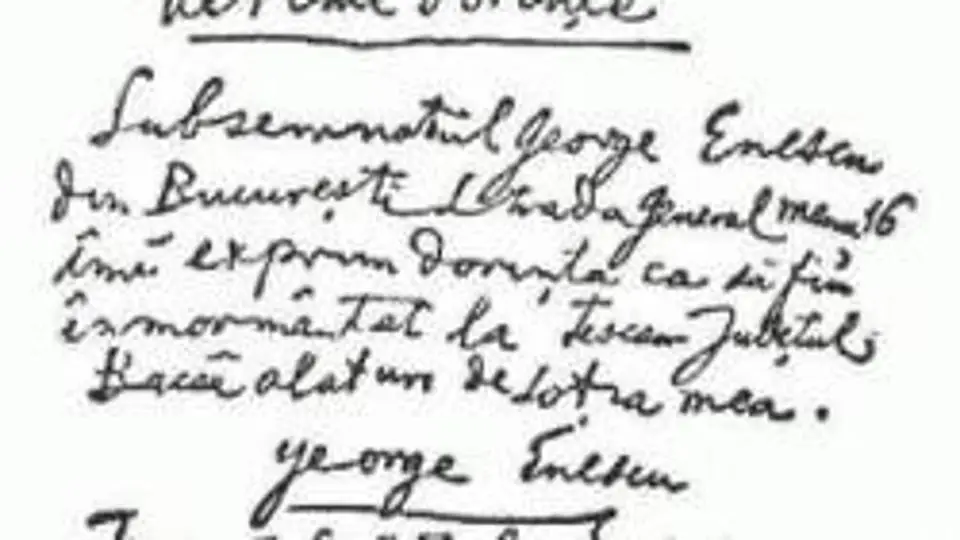 Subsemnatul George Enescu
din București Strada General Manu 16
îmi exprim dorința ca să fiu
înmormântat la Tescani Județul
Bacău alături de soția mea.
George Enescu